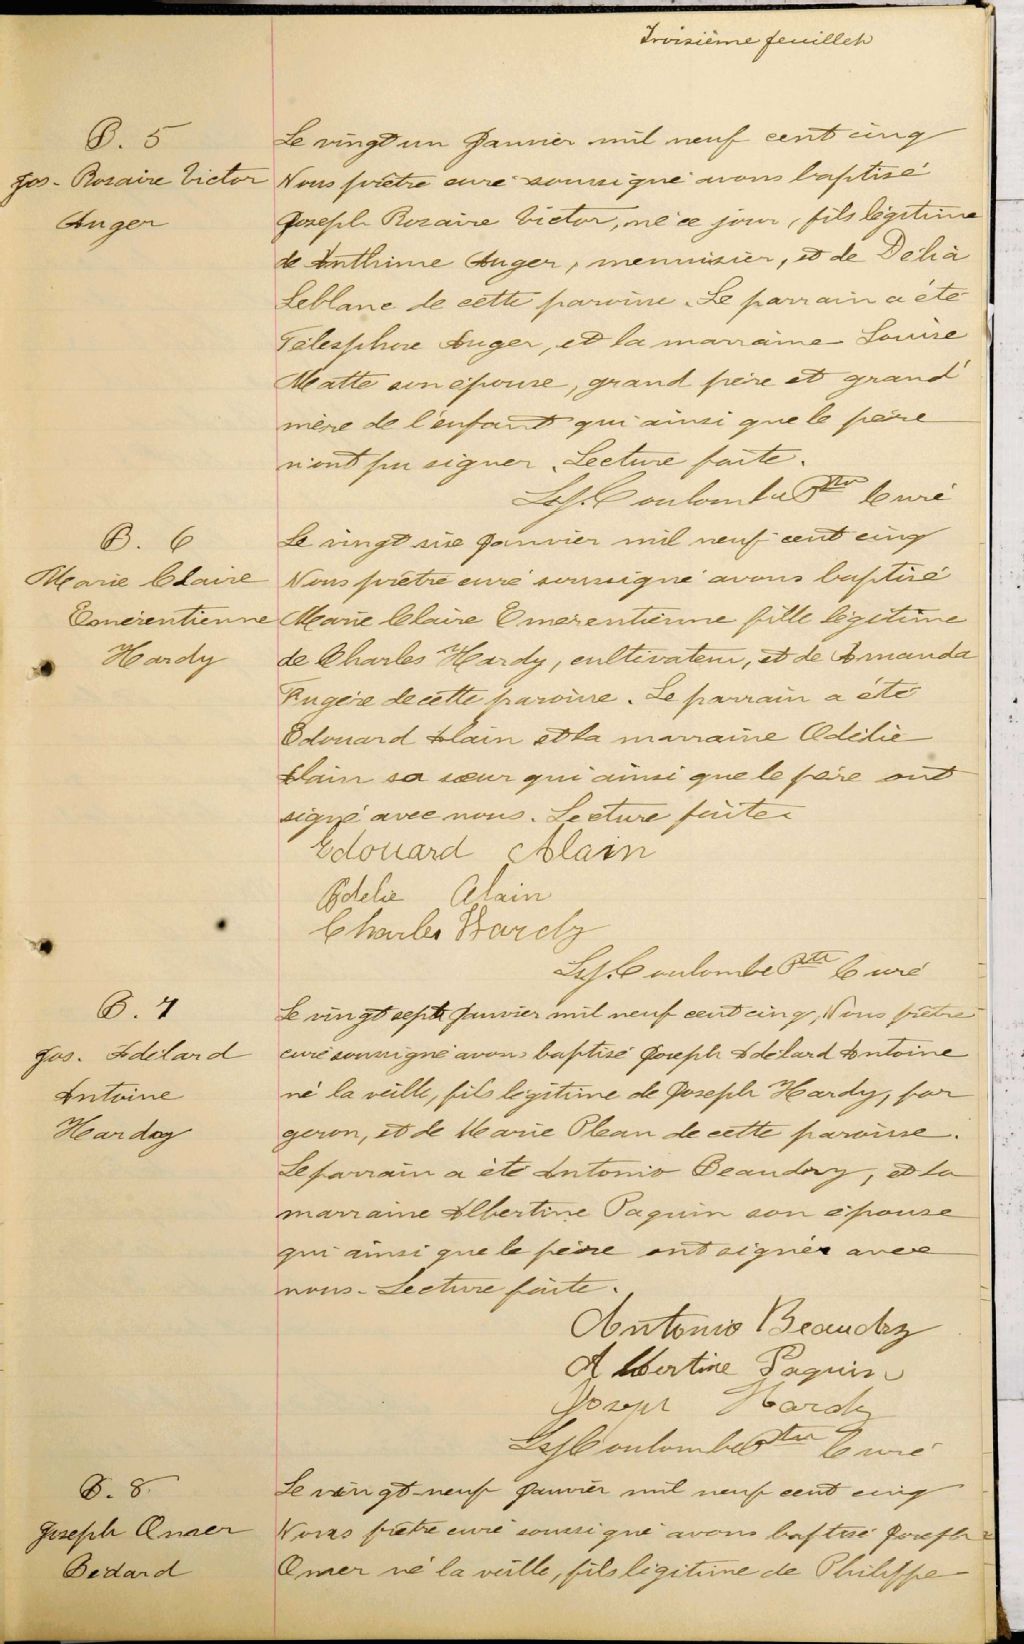 Troisième feuillet
B. 5
Jos. Rosaire Victor
Auger
Le vingt un Janvier mil neuf cent cinq
Nous prêtre curé soussigné avons baptisé
Joseph Rosaire Victor, né ce jour, fils légitime
de Anthime Auger, menuisier, et de Délia
Leblanc de cette paroisse. Le parrain a été
Télesphore Auger, et la marraine Louise
Matte son épouse, grand père et grand'
mère de l'enfant qui ainsi que le père
n'ont pu signer. Lecture faite.
Coulombe Ptre Curé
B. 6
Marie Claire
Emérentienne
Hardy
Le vingt six Janvier mil neuf cent cinq
Nous prêtre curé soussigné avons baptisé
Marie Claire Emérentienne fille légitime
de Charles Hardy, cultivateur, et de Amanda
Fugère de cette paroisse. Le parrain a été
Edouard Alain et la marraine Odélie
Alain sa sœur qui ainsi que le père ont
signé avec nous. Lecture faite.
Edouard Alain
Odelie Alain
Charles Hardy
Coulombe Ptre Curé
B. 7
Jos. Adélard
Antoine
Hardy
Le vingt sept Janvier mil neuf cent cinq, Nous prêtre
curé soussigné avons baptisé Joseph Adélard Antoine
né la veille, fils légitime de Joseph Hardy, for
geron, et de Marie Plean de cette paroisse.
Le parrain a été Antonio Beaudry, et la
marraine Albertine Paquin son épouse
qui ainsi que le père ont signés avec
nous. Lecture faite.
Antonio Beaudry
Albertine Paquin
Joseph Hardy
Coulombe Ptre Curé
B. 8
Joseph Omer
Bédard
Le vingt-neuf Janvier mil neuf cent cinq
Nous prêtre curé soussigné avons baptisé Joseph
Omer né la veille, fils légitime de Philippe